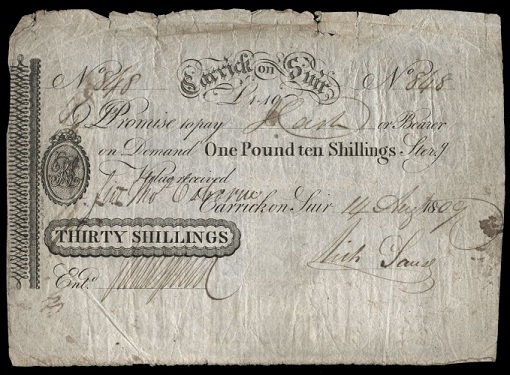 No 848 Carrick on Suir No 848
£1..10
I Promise to pay Cash or Bearer
on Demand One Pound ten Shillings Ster.g
Value received
Carrick on Suir 14 Aug 1809
THIRTY SHILLINGS
Ent.d